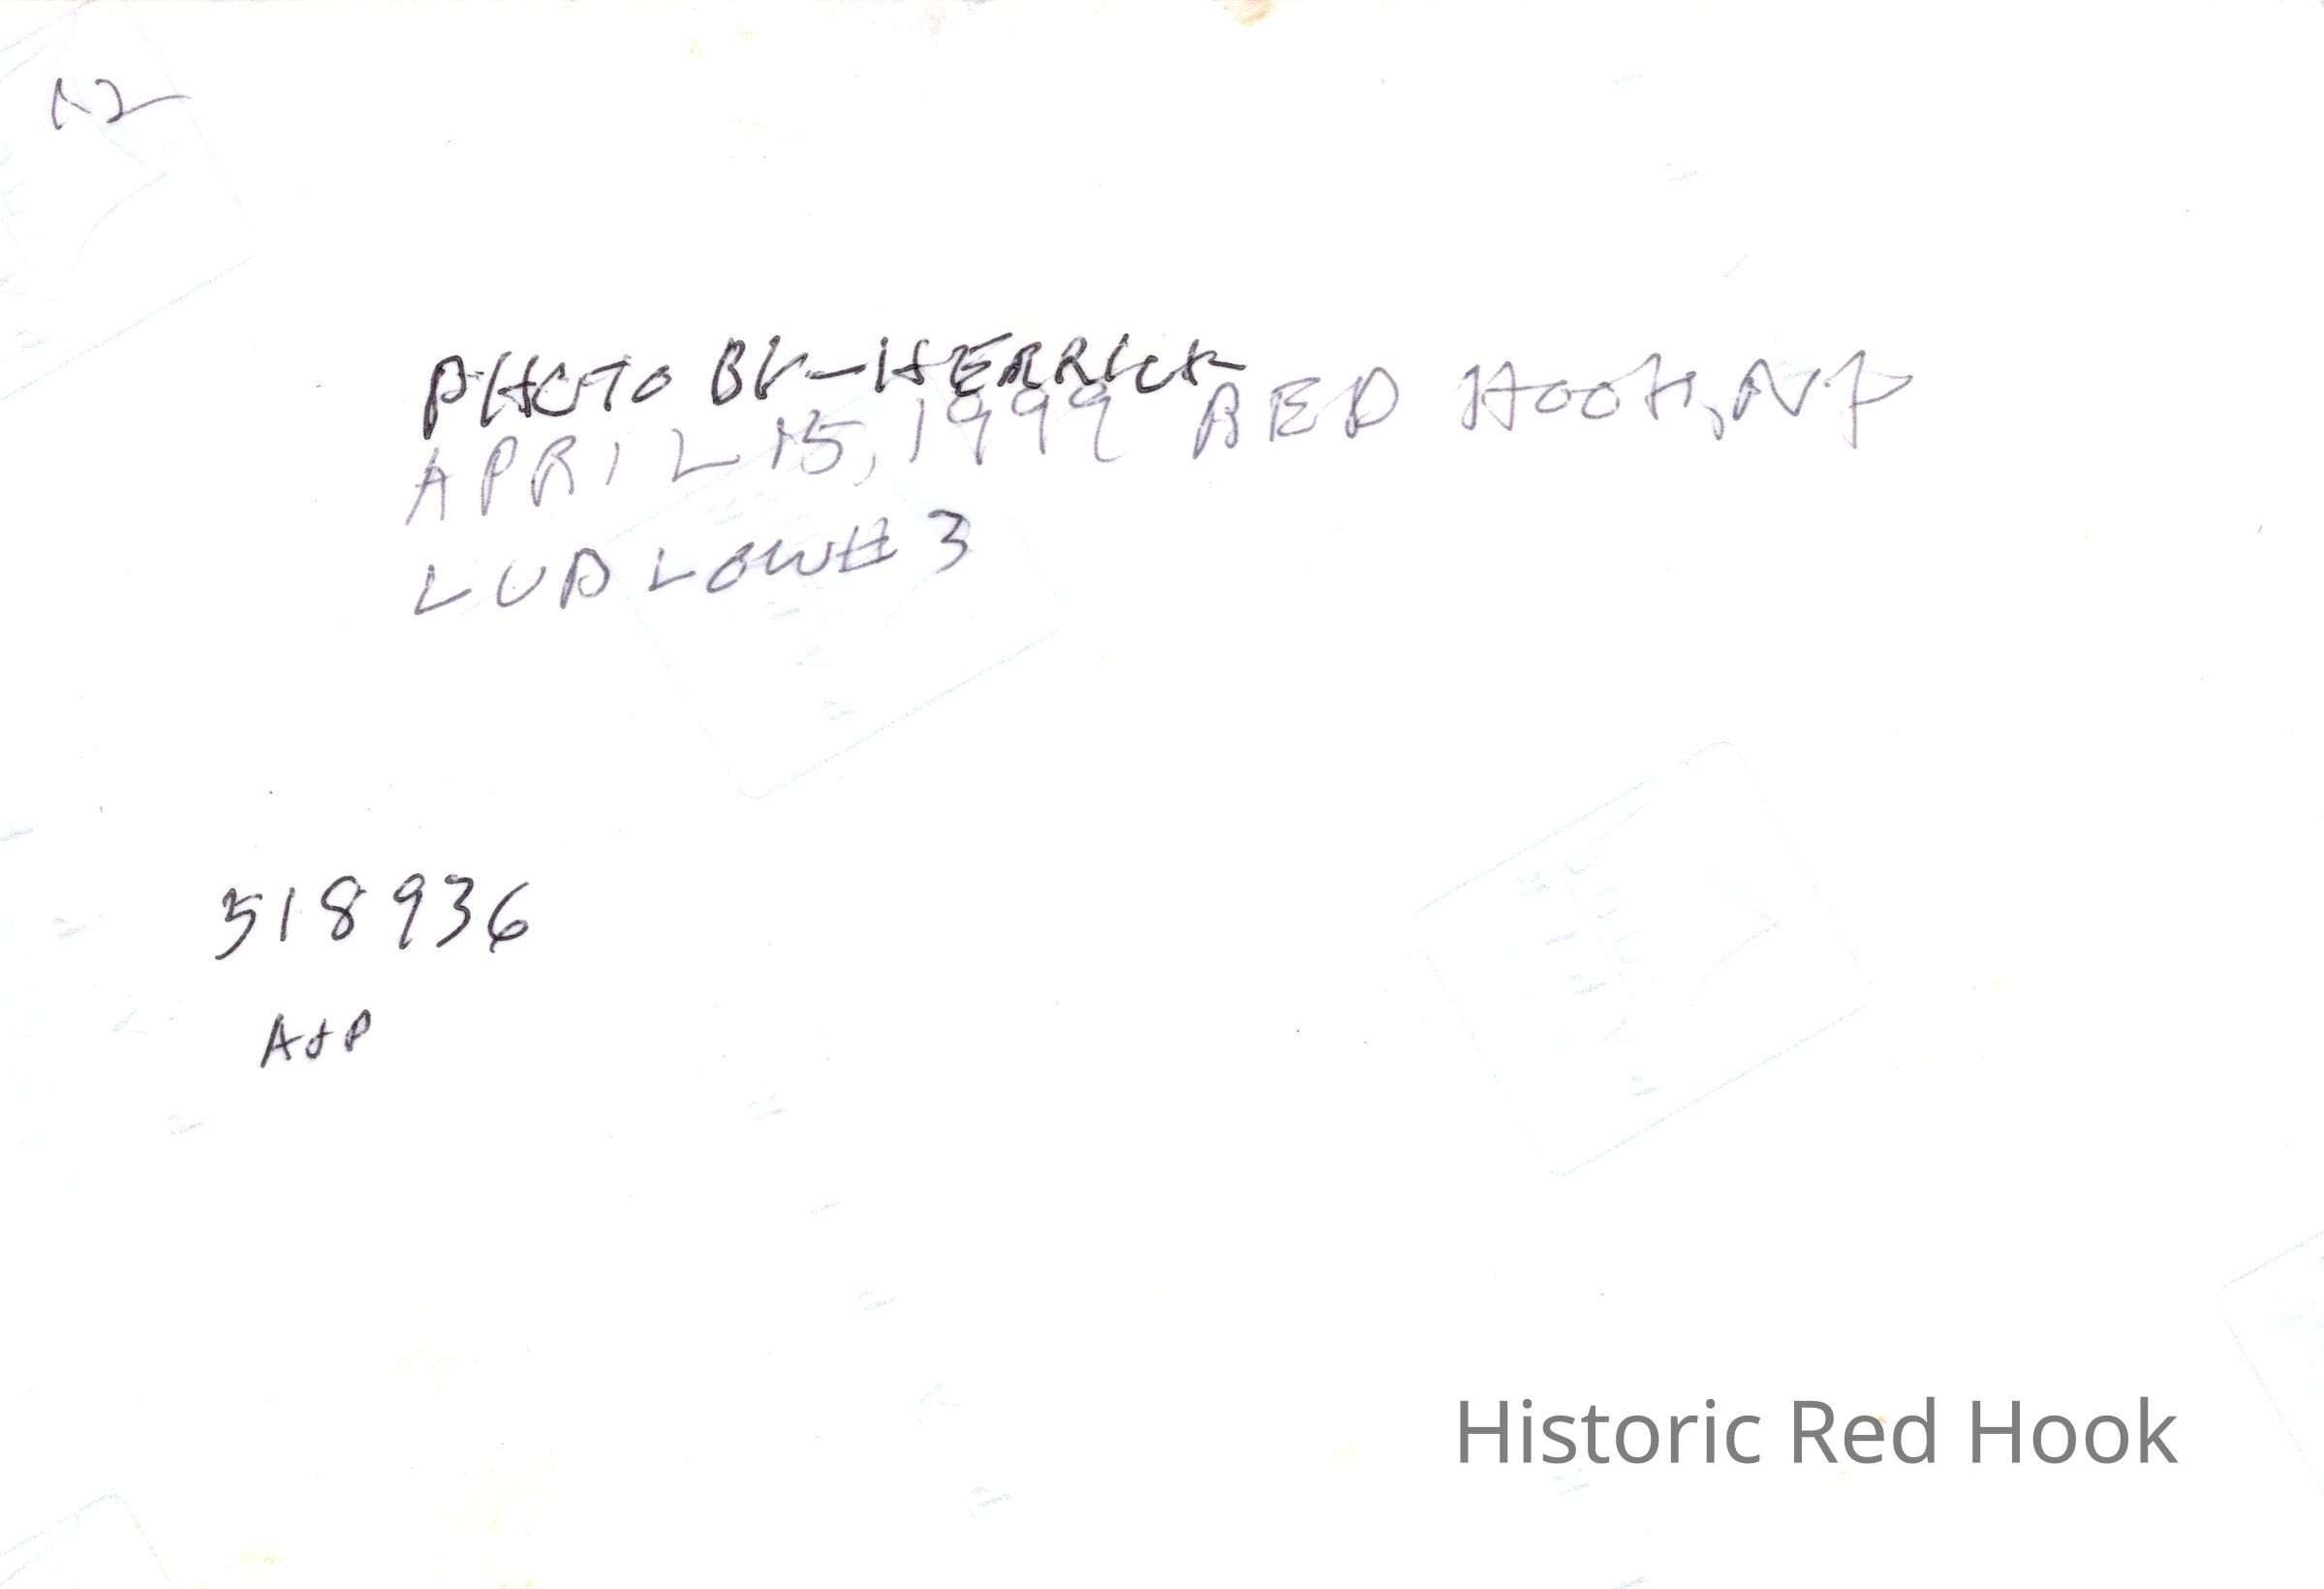 12
PHOTO BY-HERRICK
APRIL 15, 1999 RED HOOK, NY
LUDLOW # 3
518936
A+P
Historic Red Hook